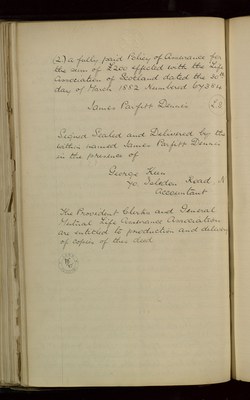 (2) a fully paid Policy of Assurance for
the sum of £200 effected with the Life
Association of Scotland dated the 20th
day of March 1882 Numbered
James Parfitt Dennis L.S
Signed Sealed and Delivered by the
within named James Parfitt Dennis
in the presence of
George Keen
Road N
Accountant
The Provident Clerks and General
Mutual Life Assurance Association
are entitled to production and delivery
of copies of this deed